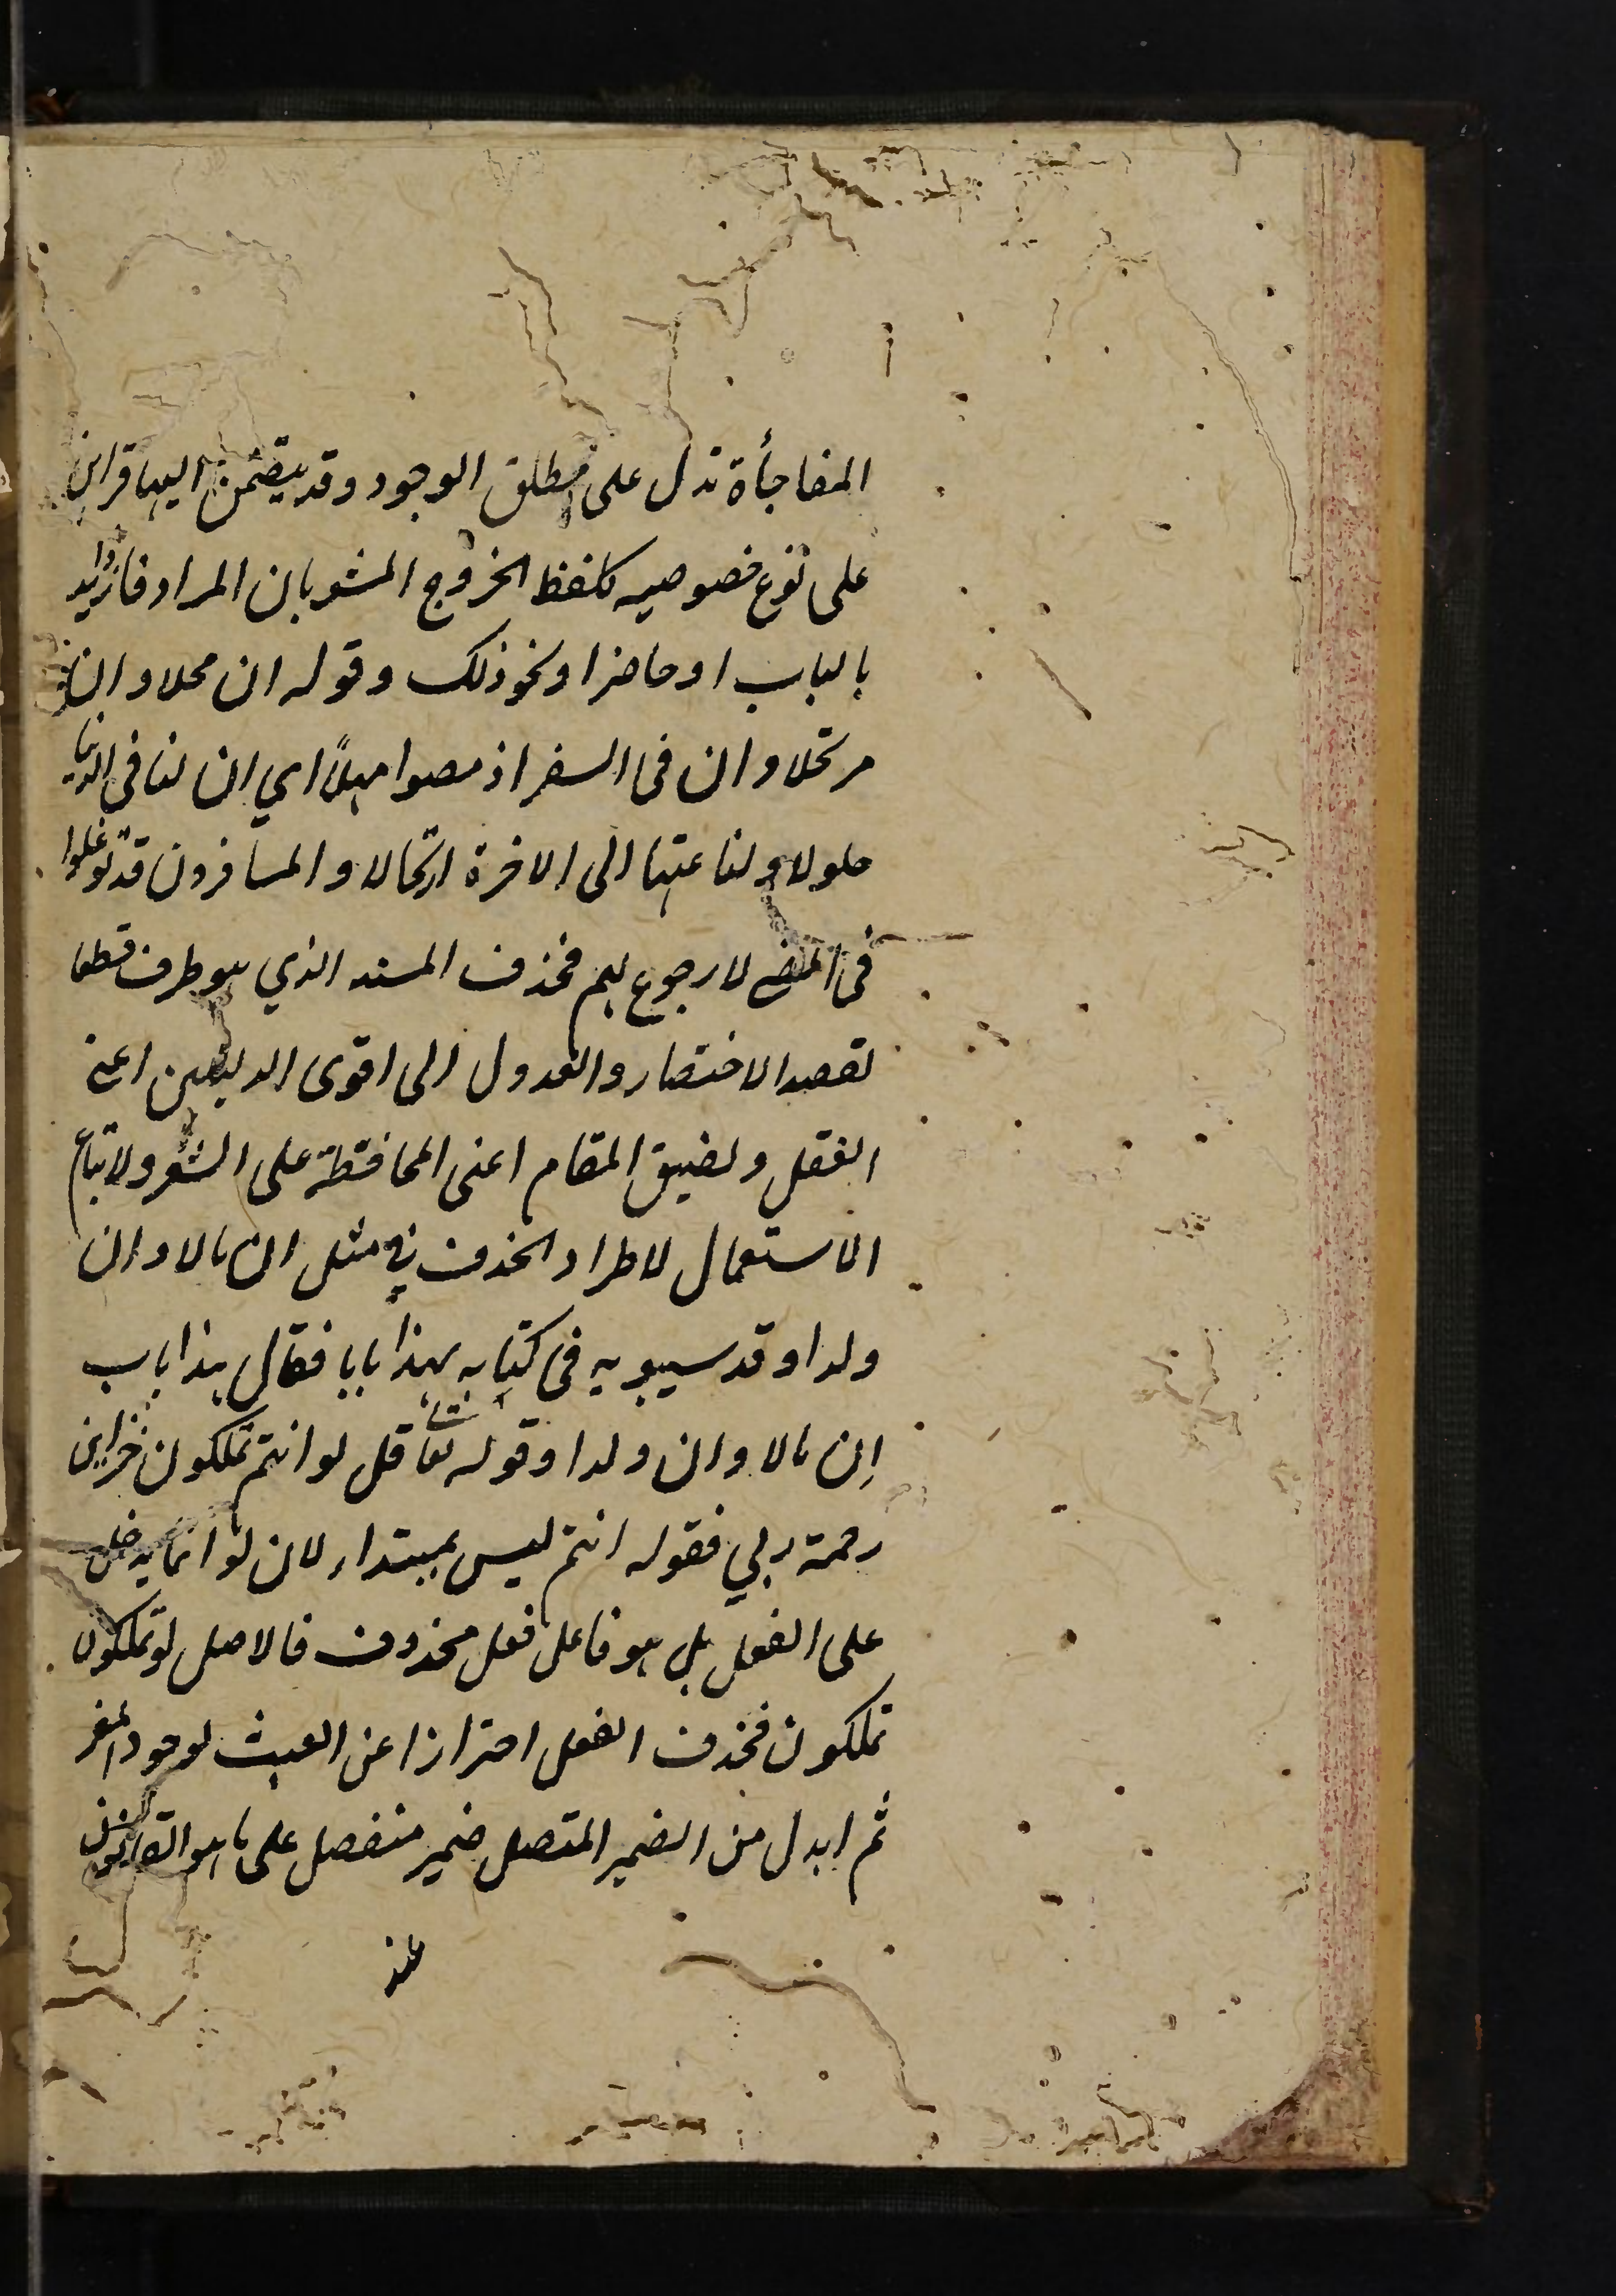 المفاجأة تدل على مطلق الوجود وقد يتضمن اليها قراين
على نوع خصوصيه كلفظ الخروج المشعر بان المراد فاذا زيد
بالباب او حاضرا ونحو ذلك وقوله ان محلا وان
مرتحلا وان فى السفر اذ مضوا مهلاً اي ان لنا فى الدنيا
حلولا ولنا عنها الى الاخرة ارتحالا والمسافرون قد توغلوا
فى المضي لا رجوع لهم فحذف المسند الذي هو ظرف قطعا
لقصد الاختصار والعدول الى اقوى الدليلين اعني
العقل ولضيق المقام اعنى المحافظة على الشعر ولاتباع
الاستعمال لاطراد الحذف في مثل ان مالا وان
ولدا وقد سيبويه فى كتابه لهذا بابا فقال هذا باب
اِن مالا وان ولدا وقوله تعا قل لو انتم تملكون خزاين
رحمة ربي فقوله انتم ليس بمبتداء لان لو انما يدخل
على الفعل بل هو فاعل فعل محذوف فالاصل لو تملكون
تملكون فحذف الفعل احترازا عن العبث لوجود المفسر
ثم ابدل من الضمير المتصل ضمير منفصل على ما هو القانون
عند